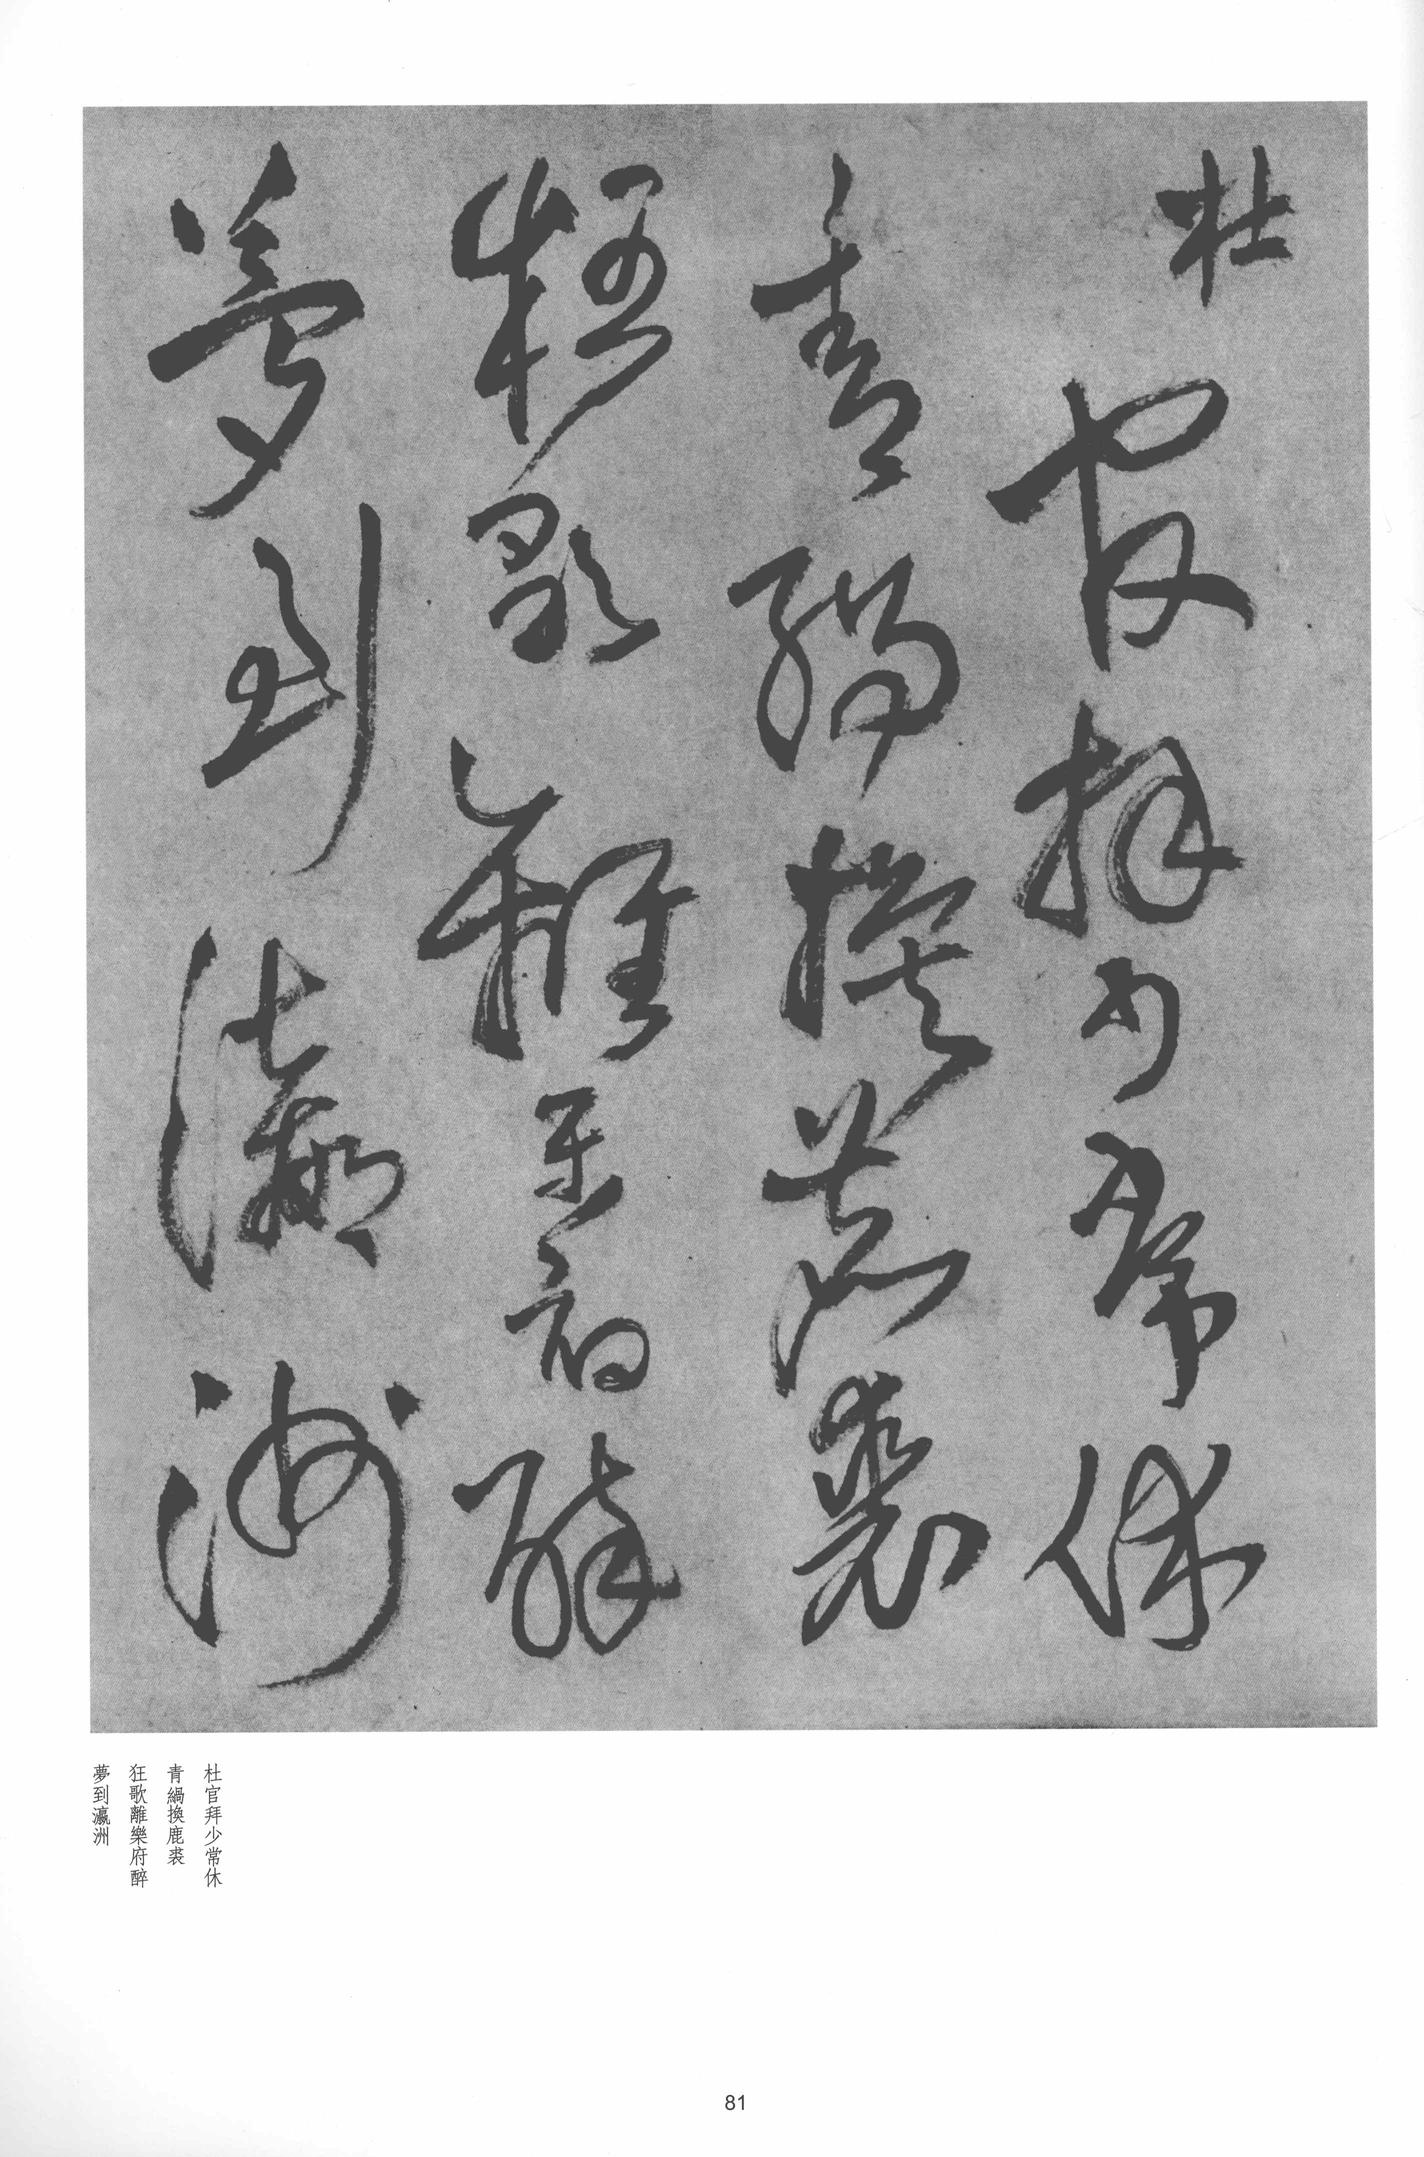 杜
官拜少常休
青緺換鹿裘
狂歌離樂府醉
夢到瀛洲
杜官拜少常休
青緺換鹿裘
狂歌離樂府醉
夢到瀛洲
81